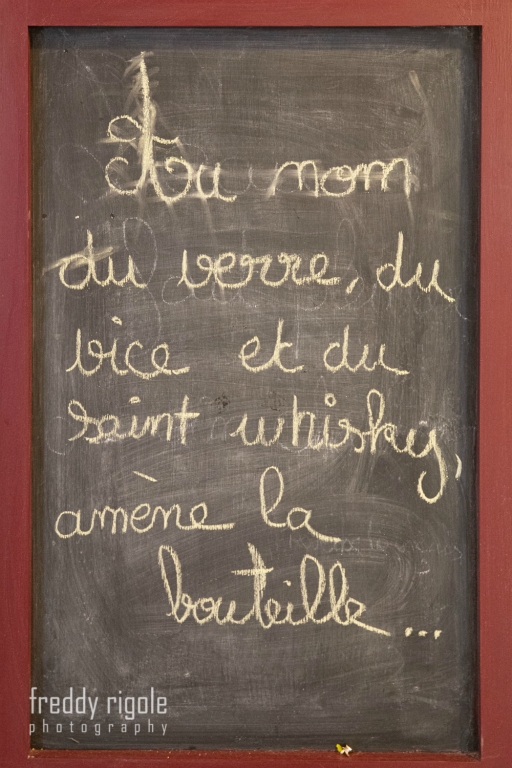 Au nom
du verre, du
vice et du
saint whisky,
amène la
bouteille...
freddy rigole
photography